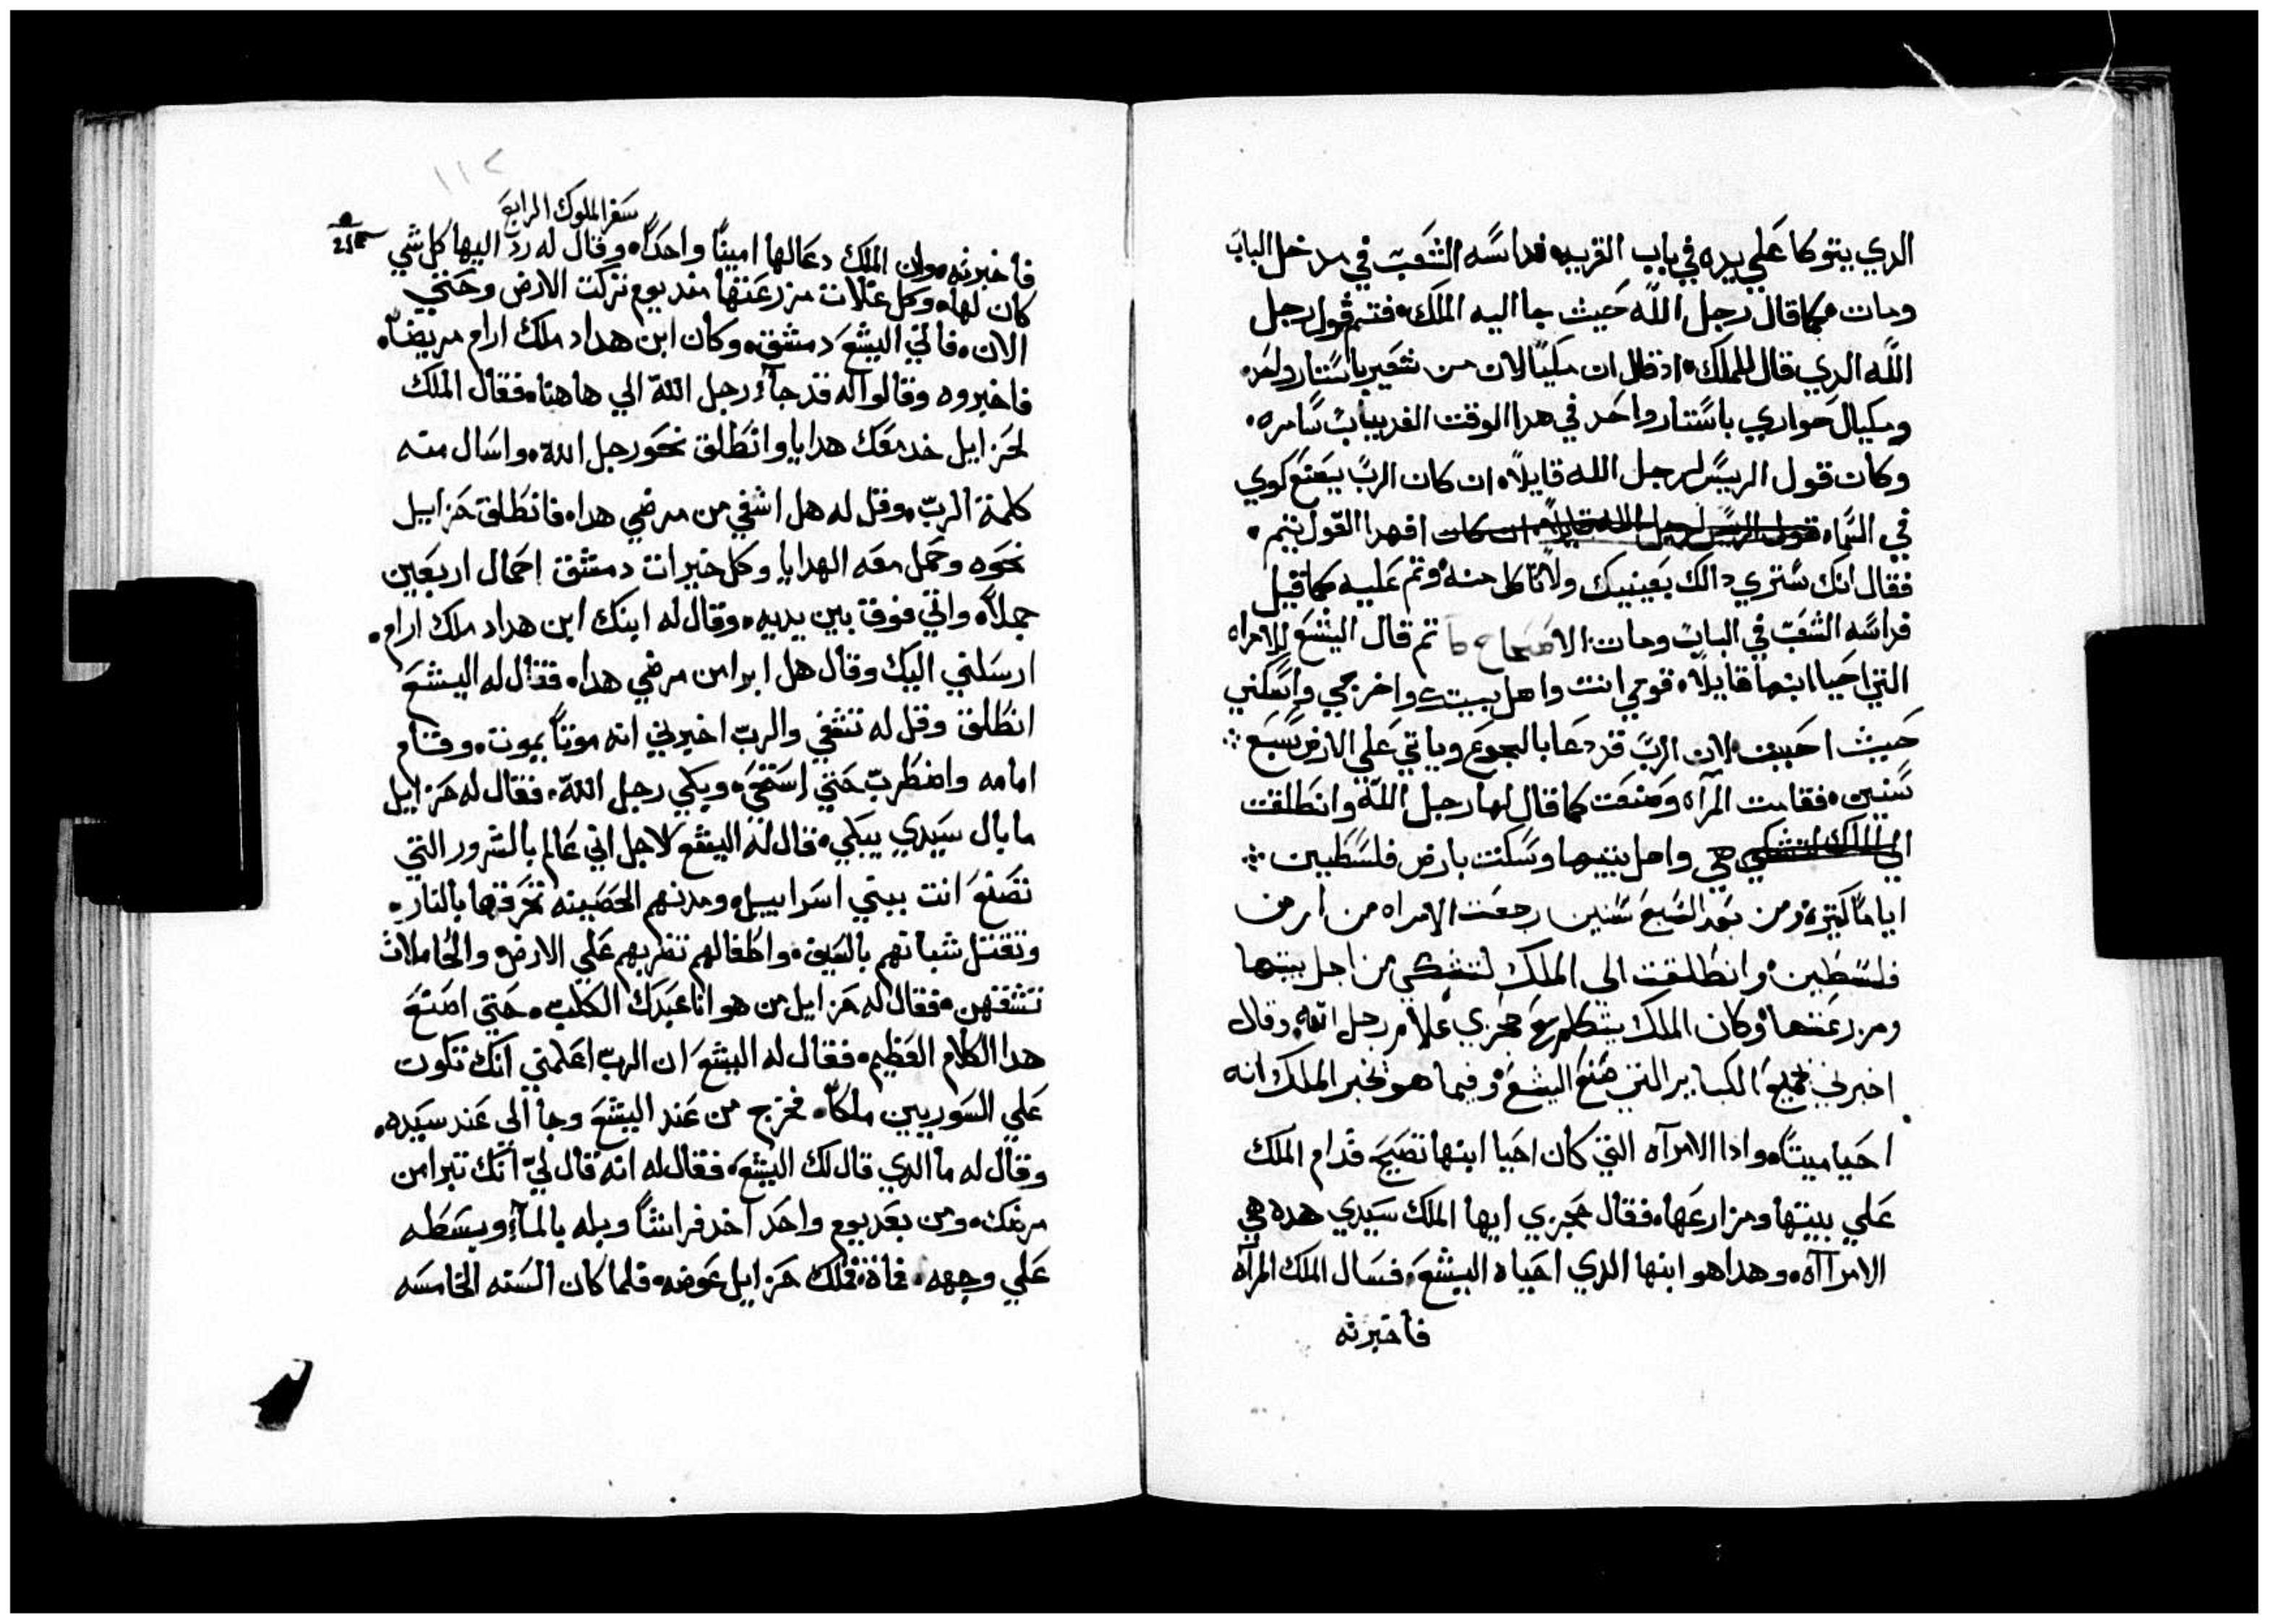 الدي يتوكا علي يده في باب القريه فداسه الشعب في مدخل الباب
ومات كما قال رجل الله حيث جا اليه الملك فتم قول رجل
الله الدي قال للملك اد قال ان مكيالان من شعير باستار واحد
ومكيال حواري باستار واحد في هدا الوقت الغد بباب سامره
وكان قول الريس لرجل الله قايلاً ان كان الرب يصنع كوي
في السما قول الريس لرجل الله قايلاً ان كان افهدا القول يتم
فقال انك ستري دالك بعينيك ولا تاكل منه وتم عليه كما قيل
فداسه الشعب في الباب ومات الاصحاح ثم قال اليشع للامراه
التي احيا ابنها قايلاً قومي انت واهل بيتك واخرجي واسكني
حيث احببت لان الرب قد دعا بالجوع وياتي علي الارض سبع
سنين فقامت المرآه وصنعت كما قال لها رجل الله وانطلقت
الي الملك لتشكي هي واهل بيتها وسكنت بارض فلسطين
اياماً كتيره ومن بعد السبع سنين رجعت الامراه من ارض
فلسطين وانطلقت الي الملك لتشكي من اجل بيتها
ومزرعتها وكان الملك يتكلم مع حجزي غلام رجل الله وقال
اخبرني بجميع الكباير التي صنع اليشع وفيما هو يخبر الملك انه
احيا ميتاً وادا الامرآه التي كان احيا ابنها تصيح قدام الملك
علي بيتها ومزارعها فقال حجزي ايها الملك سيدي هده هي
الامراآه وهدا هو ابنها الدي احياه اليشع فسال الملك المرآه
فاخبرته
١١٢
سفر الملوك الرابع
فاخبرته وان الملك دعا لها اميناً واحداً وقال له رد اليها كل شي
كان لها وكل غلات مزرعتها مند يوم تركت الارض وحتي
الان فاتي اليشع دمشق وكان ابن هداد ملك ارام مريضاً
فاخبروه وقالوا له قد جاء رجل الله الي هاهنا فقال الملك
لحزاييل خد معك هدايا وانطلق نحو رجل الله واسال منه
كلمة الرب وقل له هل اشفي من مرضي هدا فانطلق حزاييل
نحوه وحمل معه الهدايا وكل خيرات دمشق احمال اربعين
جملاً واتي فوقف بين يديه وقال له ابنك ابن هداد ملك ارام
ارسلني اليك وقال هل ابرا من مرضي هدا فقال له اليشع
انطلق وقل له تشفي والرب اخبرني انه موتاً يموت وقام
امامه واضطرب حتي استحي وبكي رجل الله فقال له حزاييل
ما بال سيدي يبكي قال له اليشع لاجل اني عالم بالشرور التي
تصنع انت ببني اسراييل ومدنهم الحصينه تحرقها بالنار
وتقتل شبانهم بالسيف واطفالهم تضربهم علي الارض والحاملات
تشقهن فقال له حزاييل من هو انا عبدك الكلب حتي اصنع
هدا الكلام العظيم فقال له اليشع ان الرب اعلمني انك تكون
علي السوريين ملكاً فخرج من عند اليشع وجا الي عند سيده
وقال له ما الدي قال لك اليشع فقال له انه قال لي انك تبرا من
مرضك ومن بعد يوم واحد اخد فراشاً وبله بالمآء وبسطه
علي وجهه فمات فملك حزاييل عوضه فلما كان السنه الخامسه